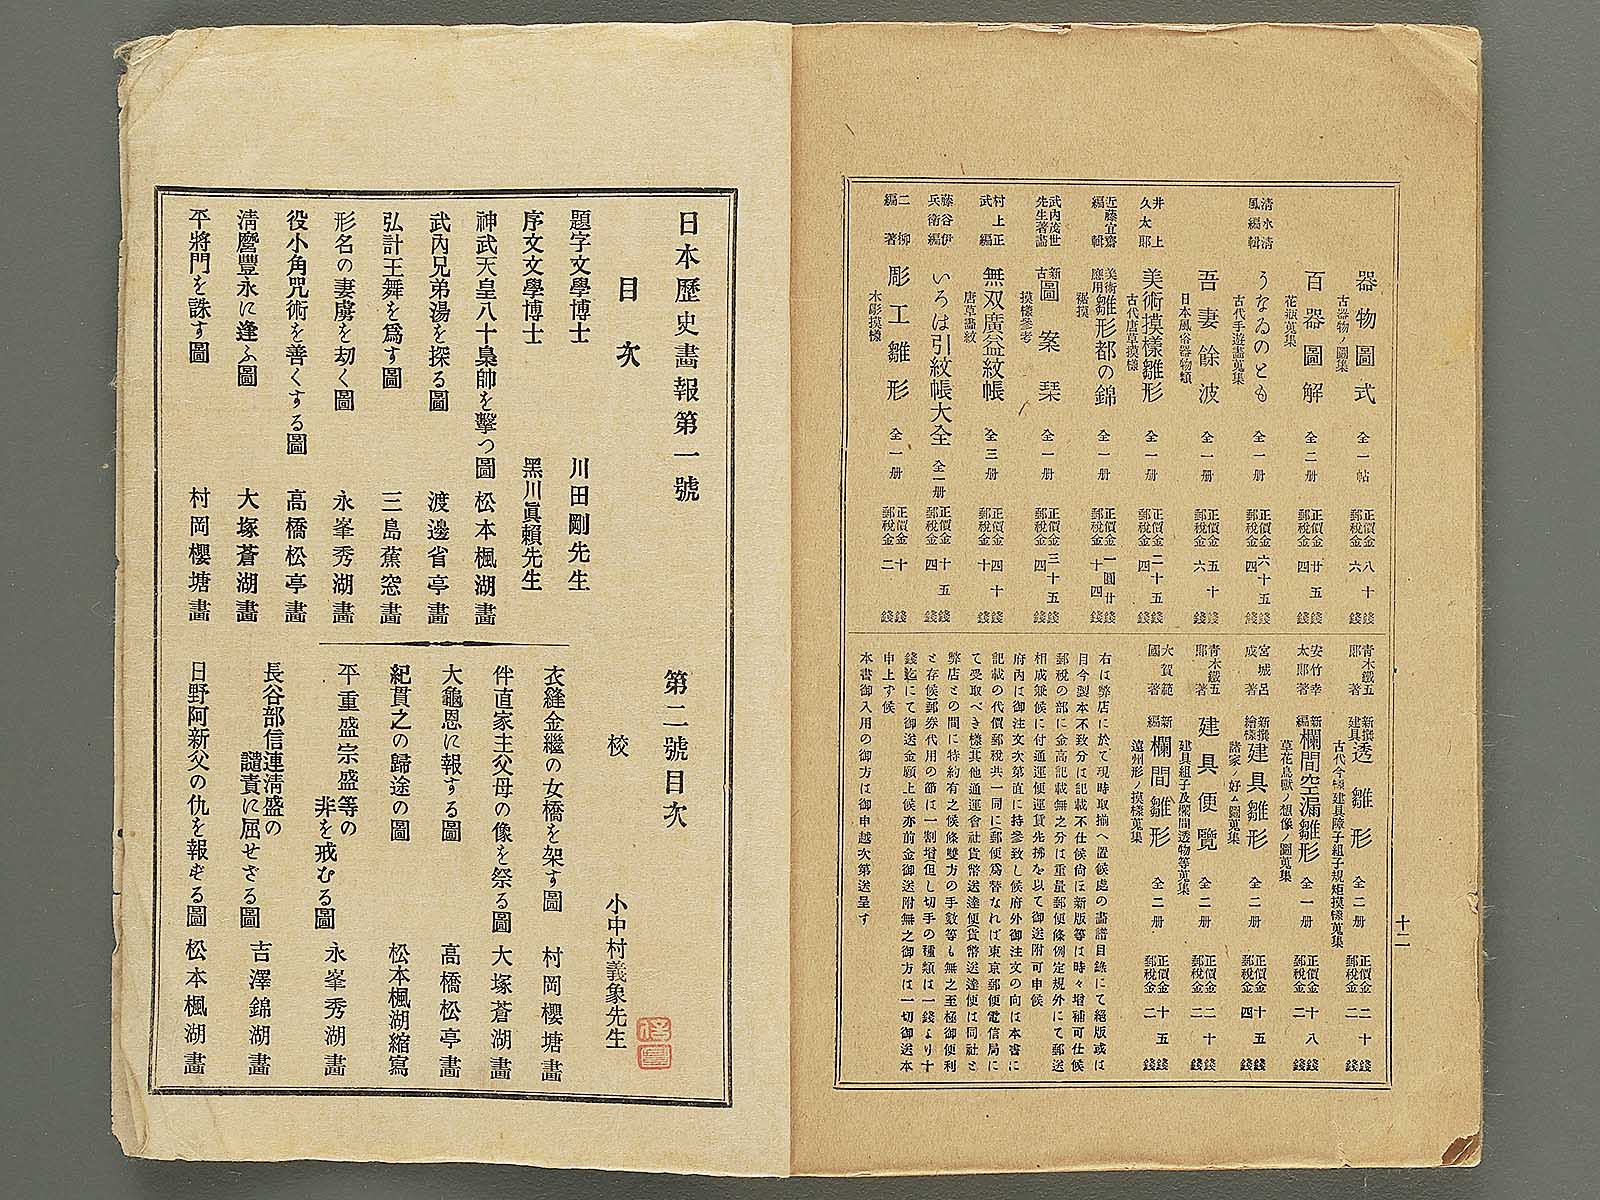 十二
器物圖式
古器物ノ圖集
全一帖
正價金八十錢
郵稅金六錢
清水清風編輯
百器圖解
花瓶蒐集
全二册
正價金廿五錢
郵稅金四錢
うなゐのとも
古代手遊畵蒐集
全一册
正價金六十五錢
郵稅金四錢
吾妻餘波
日本風俗器物類
全一册
正價金五十錢
郵稅金六錢
井上久太郎
美術摸樣雛形
古代唐草摸樣
全一册
正價金二十五錢
郵稅金四錢
近藤宜齋編輯
美術應用雛形都の錦
全一册
正價金一圓廿錢
郵稅金十四錢
武內茂世先生著畵
新古圖案栞
摸樣參考
全一册
正價金三十五錢
郵稅金四錢
村上正武編
無双廣益紋帳
唐草畵紋
全三册
正價金四十錢
郵稅金十錢
藤谷伊兵衛編
いろは引紋帳大全
全一册
正價金十五錢
郵稅金四錢
二柳編著
彫工雛形
木彫摸樣
全一册
正價金十錢
郵稅金二錢
靑木鐵五郎著
新撰建具透雛形
古代今樣建具障子組子規矩摸樣蒐集
全二册
正價金二十錢
郵稅金二錢
安竹幸太郎著
新編欄間空漏雛形
草花鳥獸ノ想像ノ圖蒐集
全一册
正價金十八錢
郵稅金二錢
宮城呂成著
新撰繪樣建具雛形
諸家ノ好ム圖蒐集
全二册
正價金十五錢
郵稅金四錢
靑木鐵五郎著
建具便覽
建具組子及欄間透物等蒐集
全二册
正價金二十錢
郵稅金二錢
大賀範國著
新編欄間雛形
遠州形ノ摸樣蒐集
全二册
正價金十五錢
郵稅金二錢
右は弊店に於て現時取揃へ置候處の畵譜目錄にて絕版或は
目今製本不致分は記載不仕候尙ほ新版等は時々增補可仕候
郵稅の部に金高記載無之分は重量郵便條例定規外にて郵送
相成兼候に付通運便運賃先拂を以て御送附可申候
府內は御注文次第直に持參致し候府外御注文の向は本書に
記載の代價郵稅共一同に郵便爲替なれば東京郵便電信局に
て受取べき樣其他通運會社貨幣送達便貨幣送達便は同社と
弊店との間に特約有之候條雙方の手數等も無之至極御便利
と存候郵券代用の節は一割增(但し切手の種類は一錢より十
錢迄)にて御送金願上候亦前金御送附無之御方は一切御送本
申上ず候
本書御入用の御方は御申越次第送呈す
日本歷史畫報第一號
目次
題字文學博士 川田剛先生
序文文學博士 黑川眞賴先生
神武天皇八十梟帥を擊つ圖 松本楓湖畫
武內兄弟湯を探る圖 渡邊省亭畫
弘計王舞を爲す圖 三島蕉窓畫
形名の妻虜を刧く圖 永峯秀湖畫
役小角咒術を善くする圖 高橋松亭畫
淸麿豐永に逢ふ圖 大塚蒼湖畫
平將門を誅す圖 村岡櫻塘畫
第二號目次
校 小中村義象先生
衣縫金繼の女橋を架す圖 村岡櫻塘畫
伴直家主父母の像を祭る圖 大塚蒼湖畫
大龜恩に報する圖 高橋松亭畫
紀貫之の歸途の圖 松本楓湖縮寫
平重盛宗盛等の非を戒むる圖 永峯秀湖畫
長谷部信連淸盛の譴責に屈せざる圖 吉澤錦湖畫
日野阿新父の仇を報ずる圖 松本楓湖畫